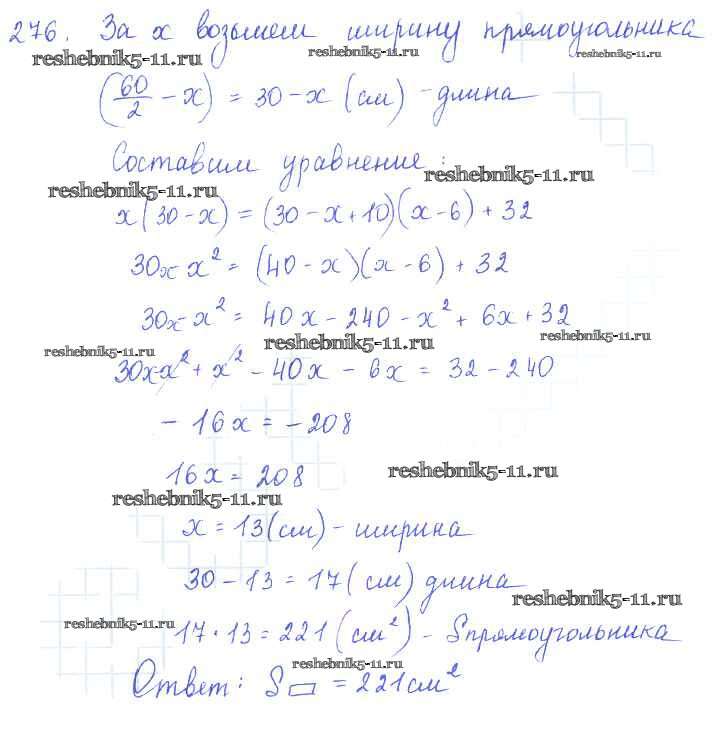 276. За x возьмем ширину прямоугольника
reshebnik5-11.ru reshebnik5-11.ru reshebnik5-11.ru
(60/2 - x) = 30 - x (см) - длина
Составим уравнение:
reshebnik5-11.ru reshebnik5-11.ru
x(30 - x) = (30 - x + 10)(x - 6) + 32
30x - x² = (40 - x)(x - 6) + 32
30x - x² = 40x - 240 - x² + 6x + 32
reshebnik5-11.ru reshebnik5-11.ru reshebnik5-11.ru
30x - x² + x² - 40x - 6x = 32 - 240
- 16x = - 208
16x = 208
reshebnik5-11.ru reshebnik5-11.ru
x = 13 (см) - ширина
30 - 13 = 17 (см) длина
reshebnik5-11.ru reshebnik5-11.ru
17 · 13 = 221 (см²) - S прямоугольника
reshebnik5-11.ru
Ответ: S▭ = 221 см²